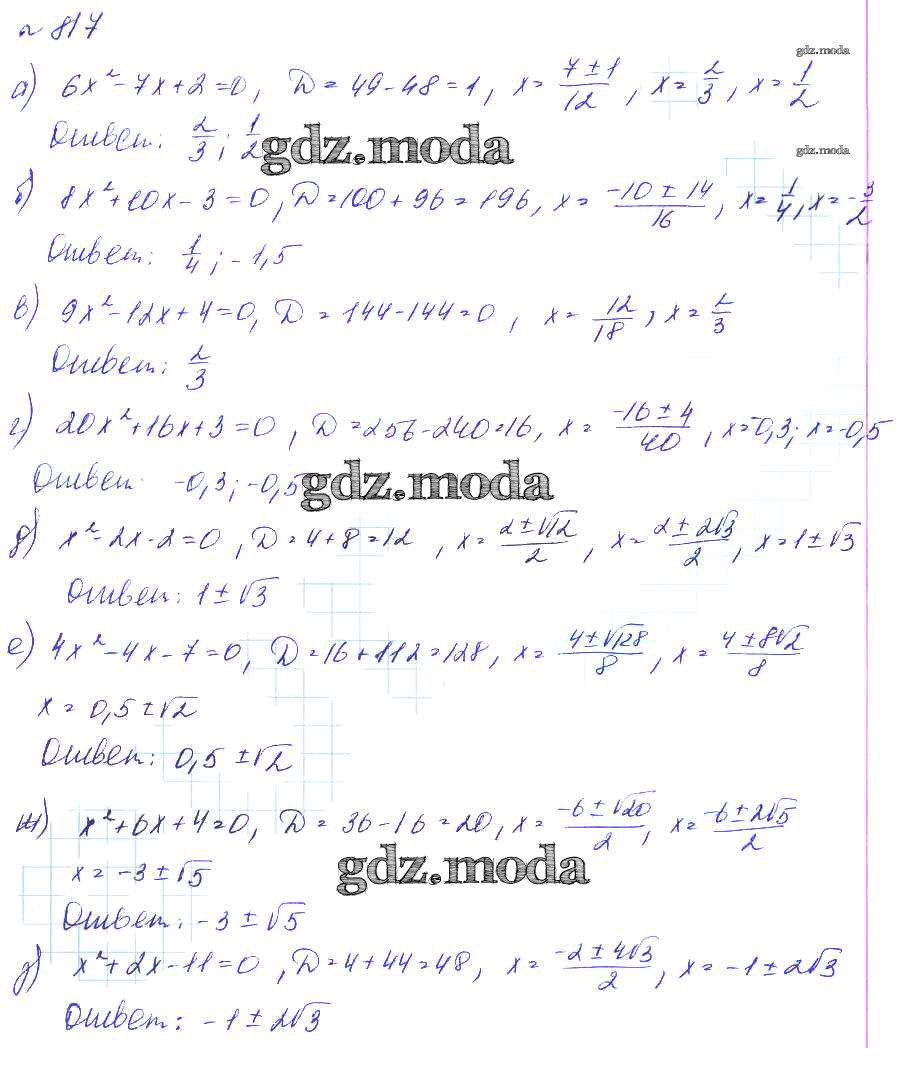 № 817
gdz.moda
а) 6x² - 7x + 2 = 0, D = 49 - 48 = 1, x = (7 ± 1)/12, x = 2/3, x = 1/2
Ответ: 2/3; 1/2
gdz.moda
gdz.moda
б) 8x² + 10x - 3 = 0, D = 100 + 96 = 196, x = (-10 ± 14)/16, x = 1/4, x = -3/2
Ответ: 1/4; -1,5
в) 9x² - 12x + 4 = 0, D = 144 - 144 = 0, x = 12/18, x = 2/3
Ответ: 2/3
г) 20x² + 16x + 3 = 0, D = 256 - 240 = 16, x = (-16 ± 4)/40, x = -0,3; x = -0,5
Ответ: -0,3; -0,5
gdz.moda
д) x² - 2x - 2 = 0, D = 4 + 8 = 12, x = (2 ± √12)/2, x = (2 ± 2√3)/2, x = 1 ± √3
Ответ: 1 ± √3
е) 4x² - 4x - 7 = 0, D = 16 + 112 = 128, x = (4 ± √128)/8, x = (4 ± 8√2)/8
x = 0,5 ± √2
Ответ: 0,5 ± √2
ж) x² + 6x + 4 = 0, D = 36 - 16 = 20, x = (-6 ± √20)/2, x = (-6 ± 2√5)/2
x = -3 ± √5
gdz.moda
Ответ: -3 ± √5
з) x² + 2x - 11 = 0, D = 4 + 44 = 48, x = (-2 ± 4√3)/2, x = -1 ± 2√3
Ответ: -1 ± 2√3